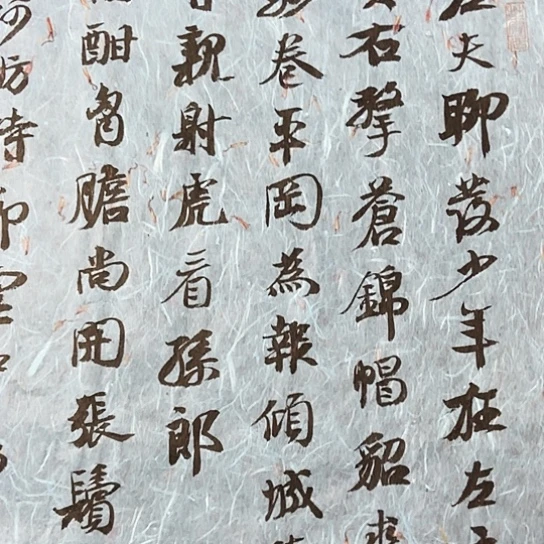 夫聊發少年狂左
右擎蒼錦帽貂裘
卷平岡為報傾城
親射虎看孫郎
酣胷膽尚開張鬢